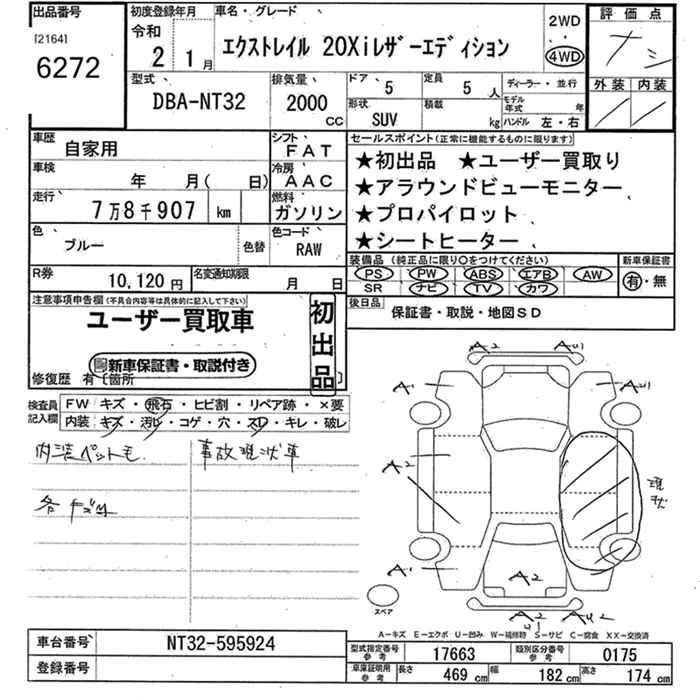 出品番号
[2164]
6272
初度登録年月
令和
2 1月
車名・グレード
エクストレイル 20Xiレザーエディション
2WD
・
4WD
評価点
ナシ
外装 内装
型式
DBA-NT32
排気量
2000
CC
ドア 5
定員 5 人
形状
SUV
積載
kg
ディーラー・並行
モデル年式 年
ハンドル 左・右
車歴
自家用
シフト
FAT
車検
年 月( 日)
冷房
AAC
走行
7万8千907 km
燃料
ガソリン
色
ブルー
色替
色コード
RAW
R券
10,120円
名変通知期限
月 日
セールスポイント(正常に機能するものに限ります)
★初出品 ★ユーザー買取り
★アラウンドビューモニター
★プロパイロット
★シートヒーター
装備品 (純正品に限り○をつけてください)
PS PW ABS エアB AW
SR ナビ TV カワ
新車保証書
有・無
後日品
保証書・取説・地図SD
注意事項申告欄(不具合内容等は具体的に記入して下さい)
ユーザー買取車
初出品
新車保証書・取説付き
修復歴 有〔箇所 〕
検査員記入欄
FW キズ・飛石・ヒビ割・リペア跡・×要
内装・キズ・汚レ・コゲ・穴・スレ・キレ・破レ
内装ペット毛
事故現状車
各キズ凹
A2 AU1
A1 AU1
A2
現状
A1 A1
A2
A2 AU2
U1
スペア
A-キズ E-エクボ U-凹み W-補修跡 S-サビ C-腐食 XX-交換済
車台番号
NT32-595924
登録番号
型式指定番号
参考
17663
類別区分番号
参考
0175
車庫証明用
参考
長さ 469 cm 幅 182 cm 高さ 174 cm